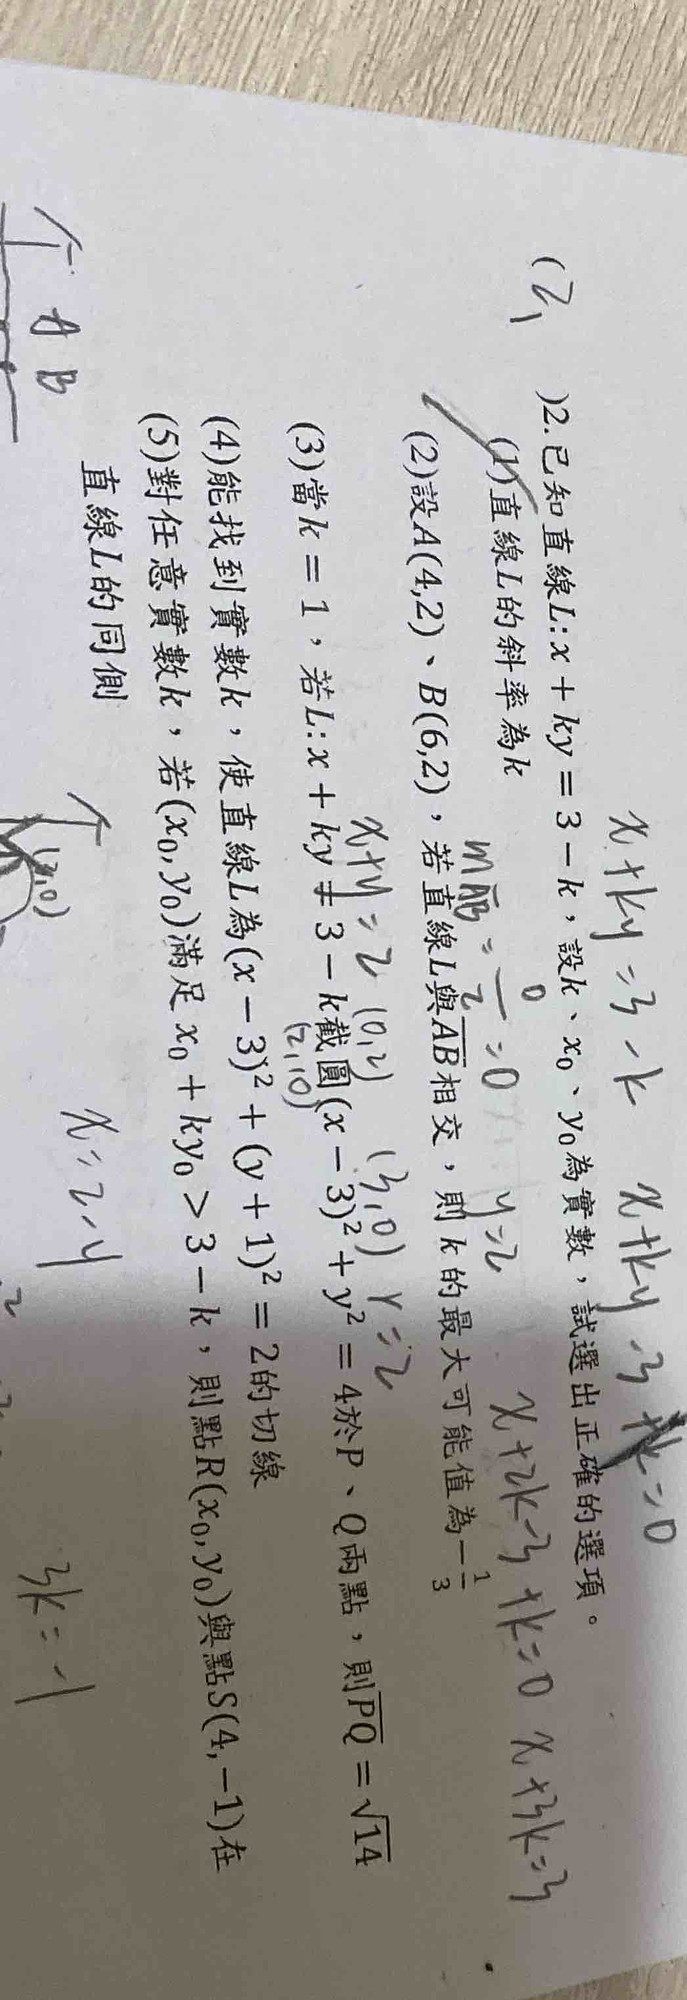 x+ky=3-k x+ky-3+k=0
(2, )2.已知直線L:x+ky=3-k，設k、x₀、y₀為實數，試選出正確的選項。
(1)直線L的斜率為k
y=2 x+2k-3+k=0 x+3k=3
(2)設A(4,2)、B(6,2)，若直線L與AB相交，則k的最大可能值為-1/3
x+y=2 (0,2) (2,0) (3,0) r=2
(3)當k=1，若L:x+ky=3-k截圓(x-3)²+y²=4於P、Q兩點，則PQ=√14
(4)能找到實數k，使直線L為(x-3)²+(y+1)²=2的切線
(5)對任意實數k，若(x₀,y₀)滿足x₀+ky₀>3-k，則點R(x₀,y₀)與點S(4,-1)在
直線L的同側
A B
(3,0)
x=2-y
3k=-1